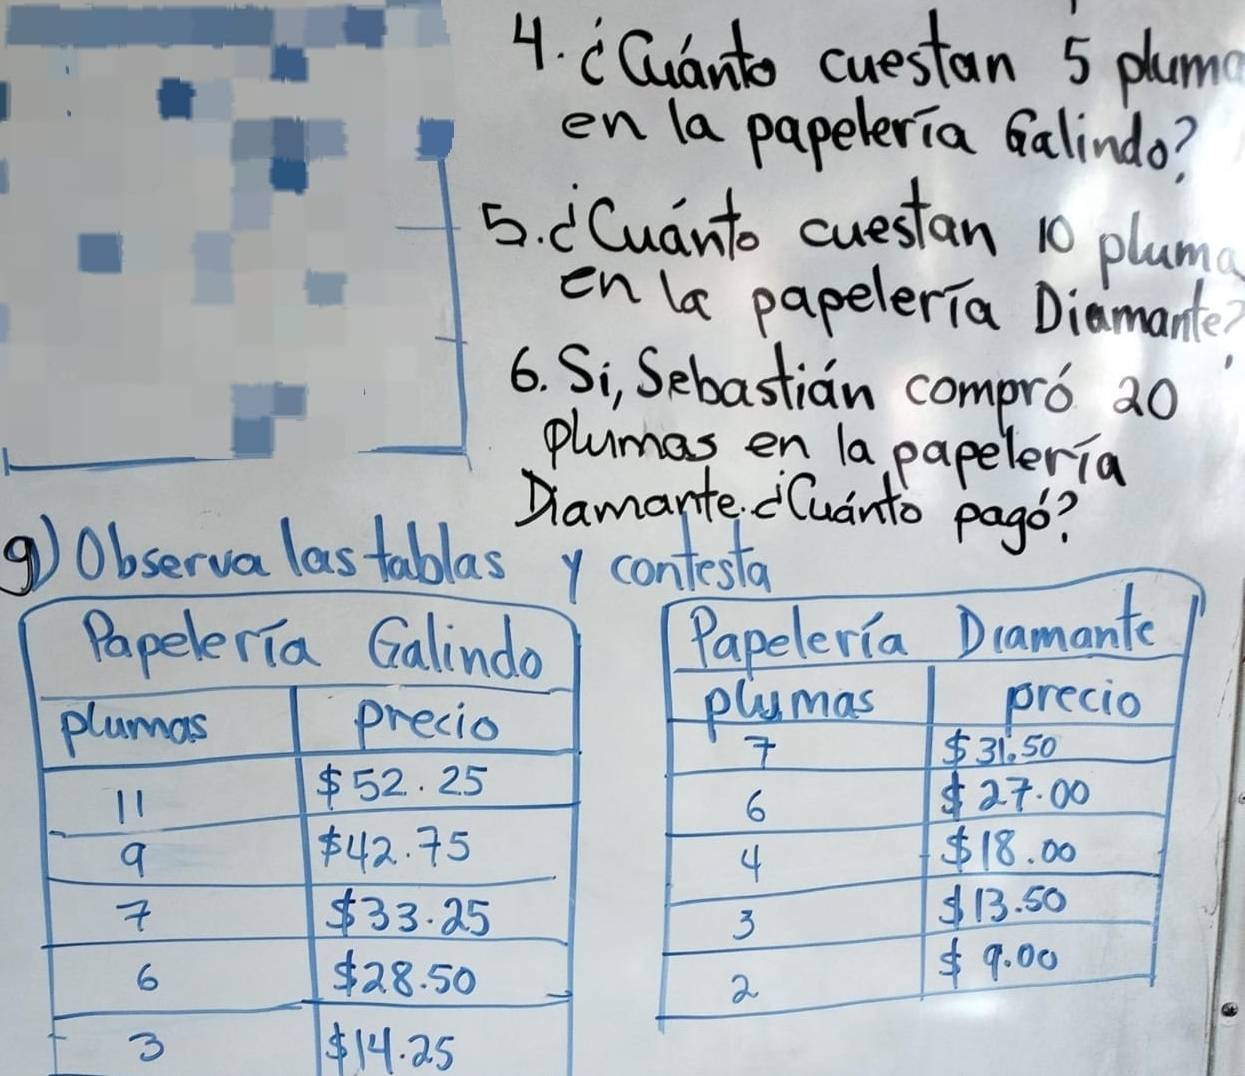 4. ¿Cuánto cuestan 5 pluma
en la papelería Galindo?
5. ¿Cuánto cuestan 10 pluma
en la papelería Diamante?
6. Si, Sebastián compró 20
plumas en la papelería
Diamante. ¿Cuánto pagó?
g) Observa las tablas y contesta
Papelería Galindo
plumas precio
11 $52.25
9 $42.75
7 $33.25
6 $28.50
3 $14.25
Papelería Diamante
plumas precio
7 $31.50
6 $27.00
4 $18.00
3 $13.50
2 $9.00